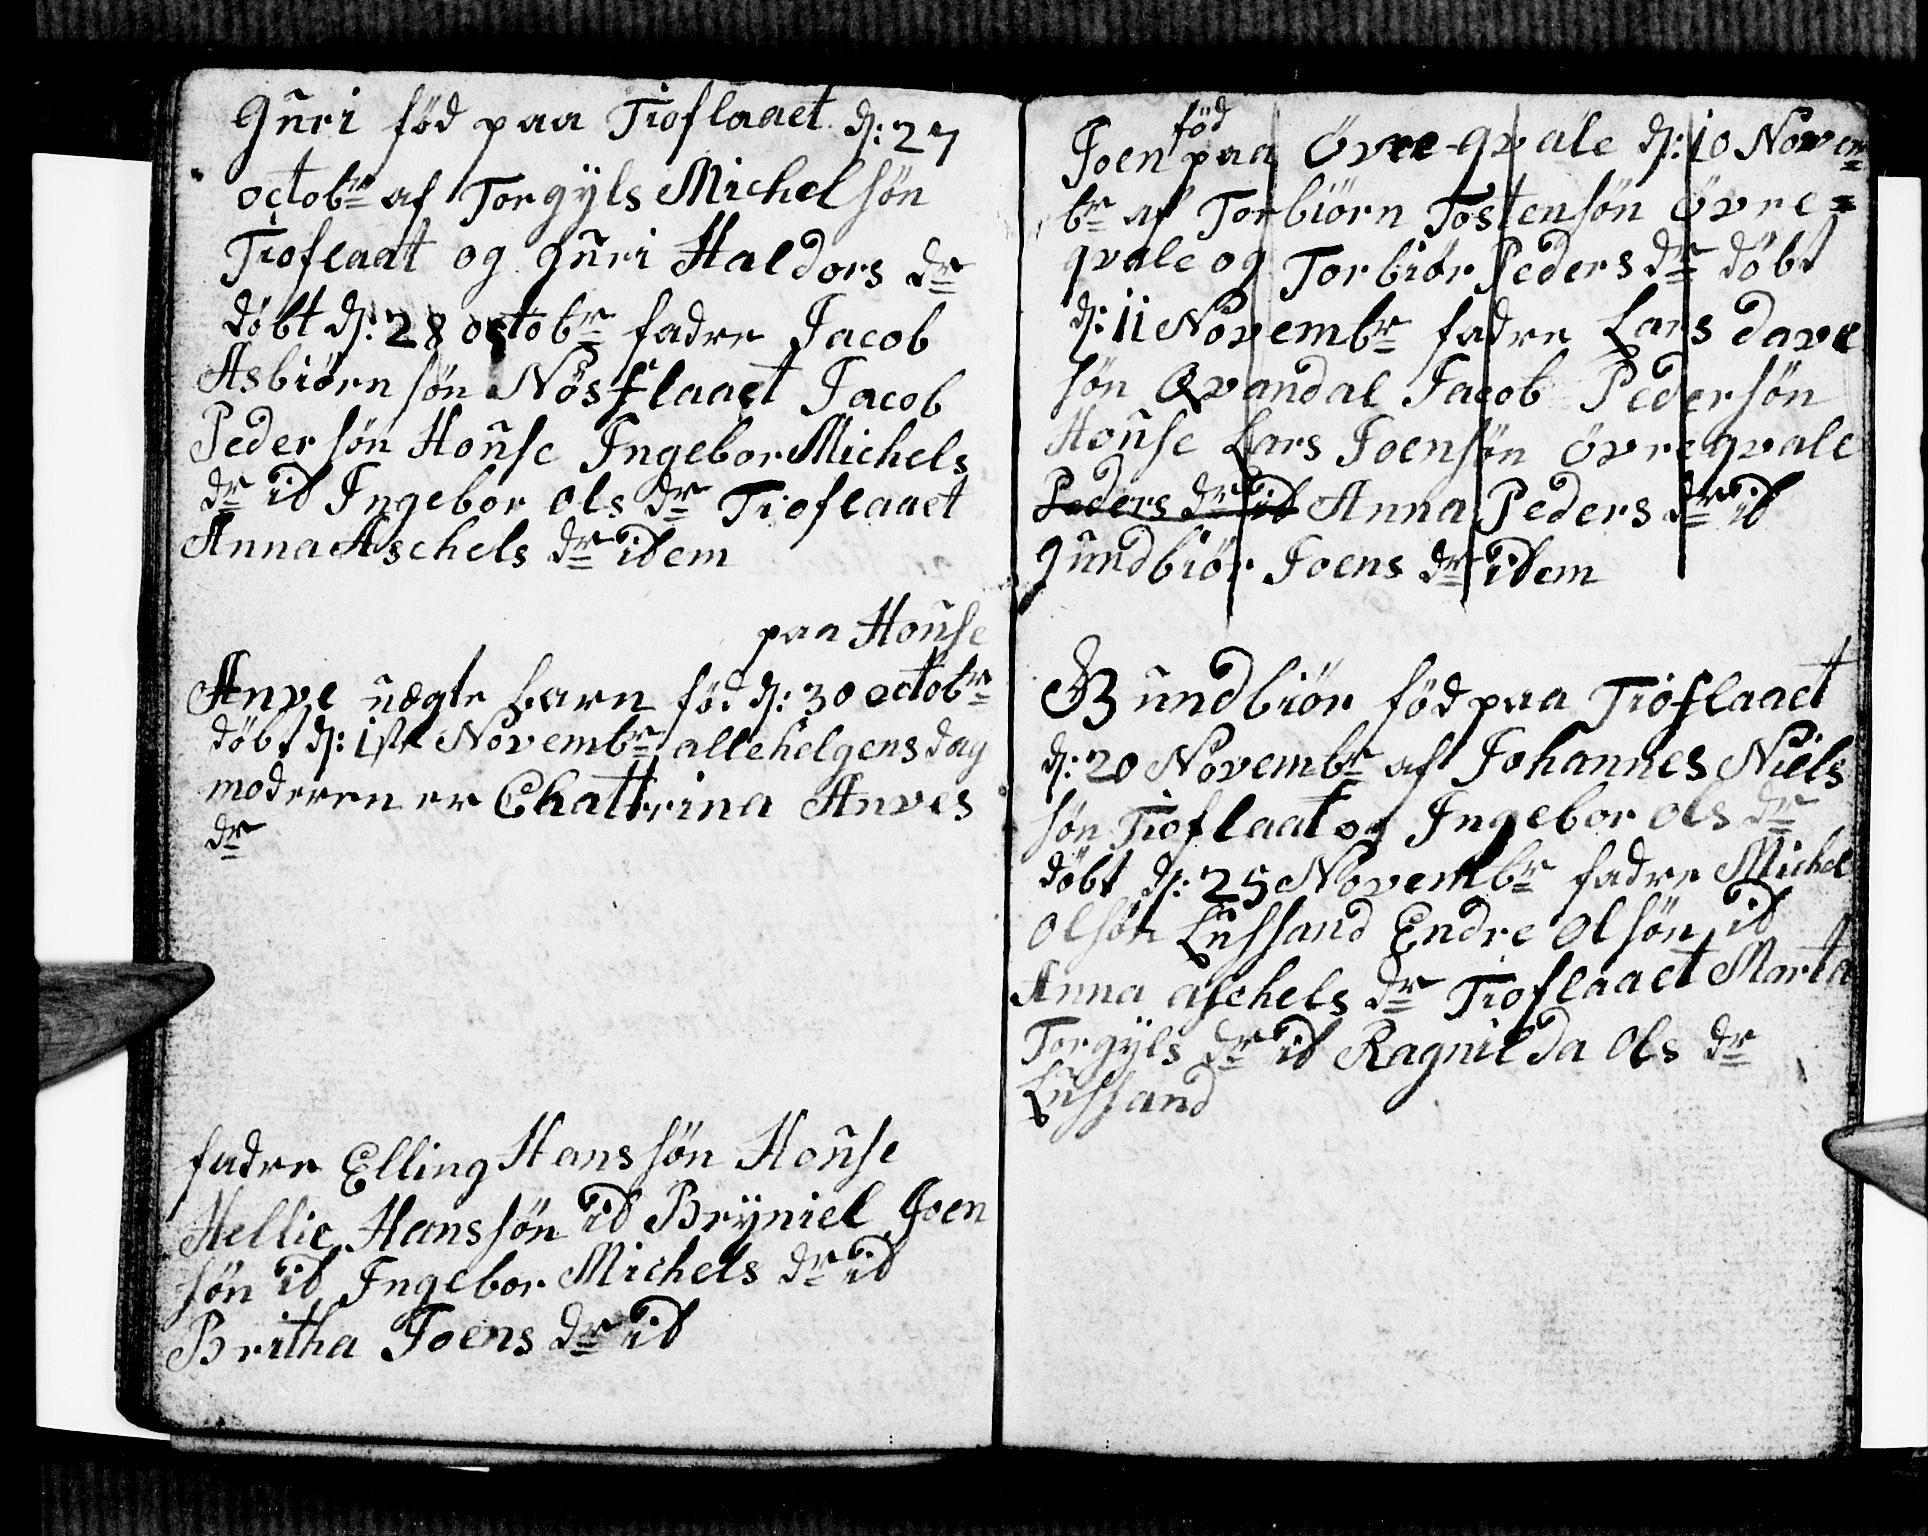 Guri föd paa Tioflaaet d: 27
octobr af Torgÿls Michelsön
Tioflaat og guri Haldors dr
döbt d: 28 octobr fadre Jacob
Asbiörnsön Nösflaaet Jacob
Pedersön House Ingebor Michels
dr id Ingebor Ols dr Tioflaaet
Anna Aschels dr idem
paa House
Anve uægte barn föd d: 30 octobr
döbt d: 1ste Novembr allehelgens dag
moderen er Chattrina Anves
dr
fadre Elling Hanssön House
Hellie Hanssön id Brÿniel Joen
sön id Ingebor Michels dr id
Britha Joens dr id
föd
Joen paa Övre-qvale d: 10 Novem
br af Torbiörn Tostensön övre=
qvale og Torbiör Peders dr döbt
d: 11 Novembr fadre Lars dave
sön Qvandal Jacob Pedersön
House Lars Joensön övreqvale
Peders dr id Anna Peders dr id
gundbiör Joens dr idem
Gundbiör föd paa Tioflaaet
d: 20 Novembr af Johannes Niels
sön Tioflaat og Ingebor Ols dr
döbt d: 25 Novembr fadre Michel
Olsön Lussand Endre Olsön id
Anna aschels dr Tioflaaet Marta
Torgÿls dr id Ragnilda Ols dr
Lussand